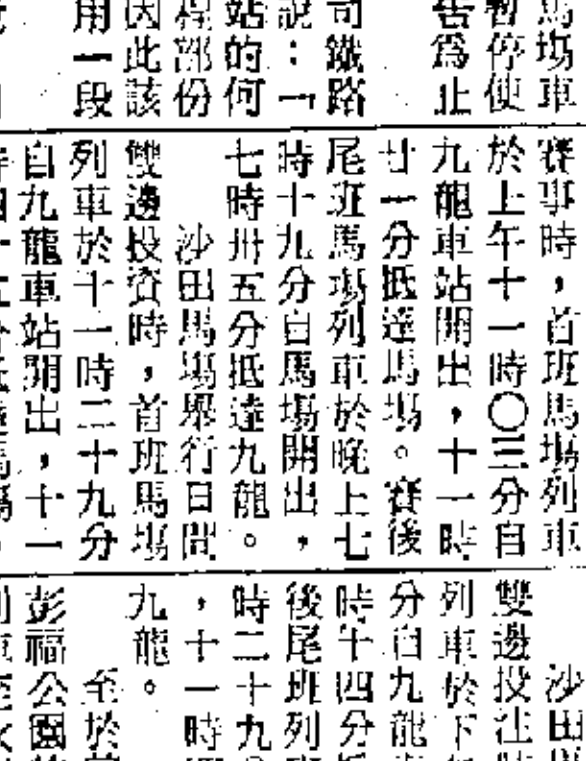 馬場車
暫停使
告爲止
司鐵路
說：一
站的何
程部份
因此該
用一段
賽事時，首班馬場列車
於上午十一時〇三分自
九龍車站開出，十一時
廿一分抵達馬場。賽後
尾班馬場列車於晚上七
時十九分自馬場開出，
七時卅五分抵達九龍。
沙田馬場舉行日間
雙邊投資時，首班馬場
列車於十一時二十九分
自九龍車站開出，十一
沙田
雙邊投注時
列車於下
分自九龍
時午四分
後尾班列
時二十九
，十一時
九龍。
至於
彭福公園